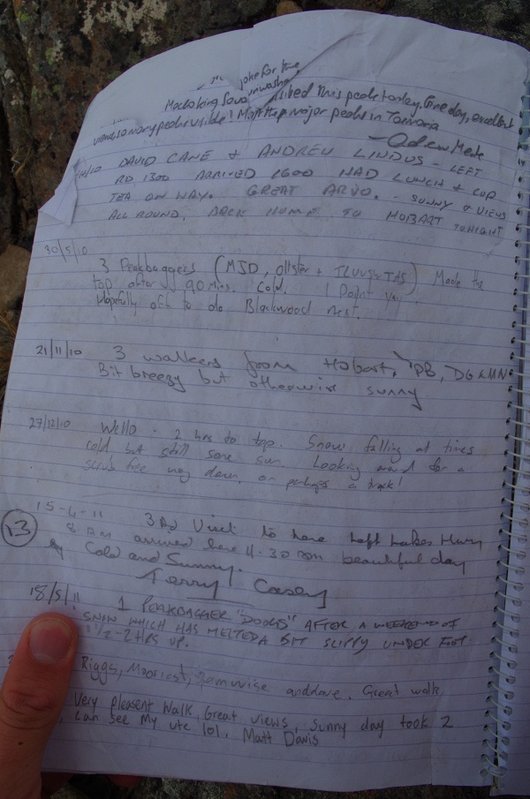 joke for the
unwashed
this peak today. Fine day, excellent
views, so many peaks visible! Most the major peaks in Tasmania
DAVID CANE + ANDREW LINDUS - LEFT
RD 1300 ARRIVED 1600 HAD LUNCH + CUP
TEA ON WAY. GREAT ARVO. - SUNNY & VIEWS
ALL ROUND, BACK HOME TO HOBART TONIGHT
30/5/10
3 Peakbaggers (MJD, ollster + ILUVSWTAS) Made the
top after 90 mins. Cold. 1 Point yay
Hopefully off to do Blackwood next.
21/11/10 3 walkers from Hobart, PB, DG & MN
Bit breezy but otherwise sunny
27/12/10 Wello - 2 hrs to top. Snow falling at times
cold but still some sun. Looking around for a
scrub free way down, or perhaps a track!
15-4-11 3Rd Visit to here Left Lakes Hwy
13 8 AM arrived here 11.30 am beautiful day
Cold and Sunny.
Terry Casey
18/5/11 1 PEAKBAGGER "DOOGS" AFTER A WEEKEND OF
SNOW WHICH HAS MELTED A BIT SLIPPY UNDER FOOT
1/2-2 HRS UP.
Riggs, Great walk,
Very pleasent walk, Great views, sunny day took 2
can see my ute lol. Matt Davis